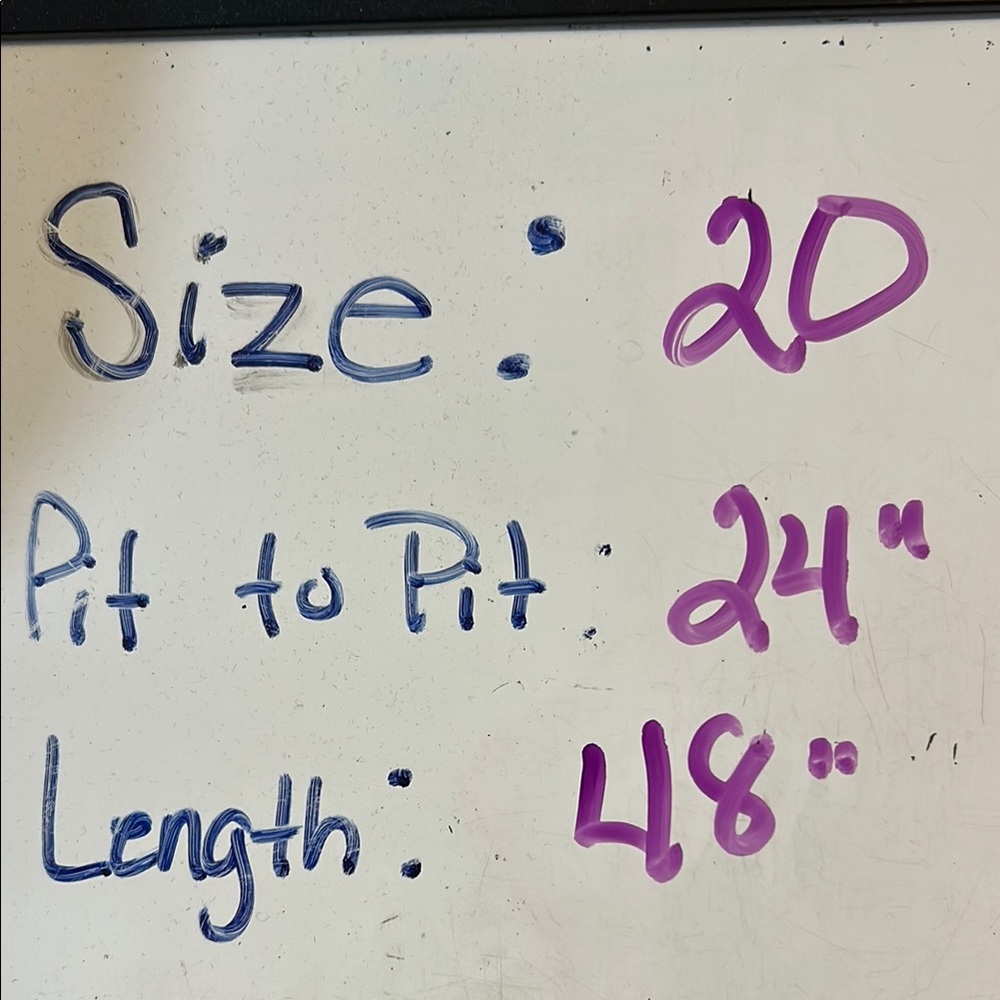 Size: 20
Pit to Pit: 24"
Length: 48"